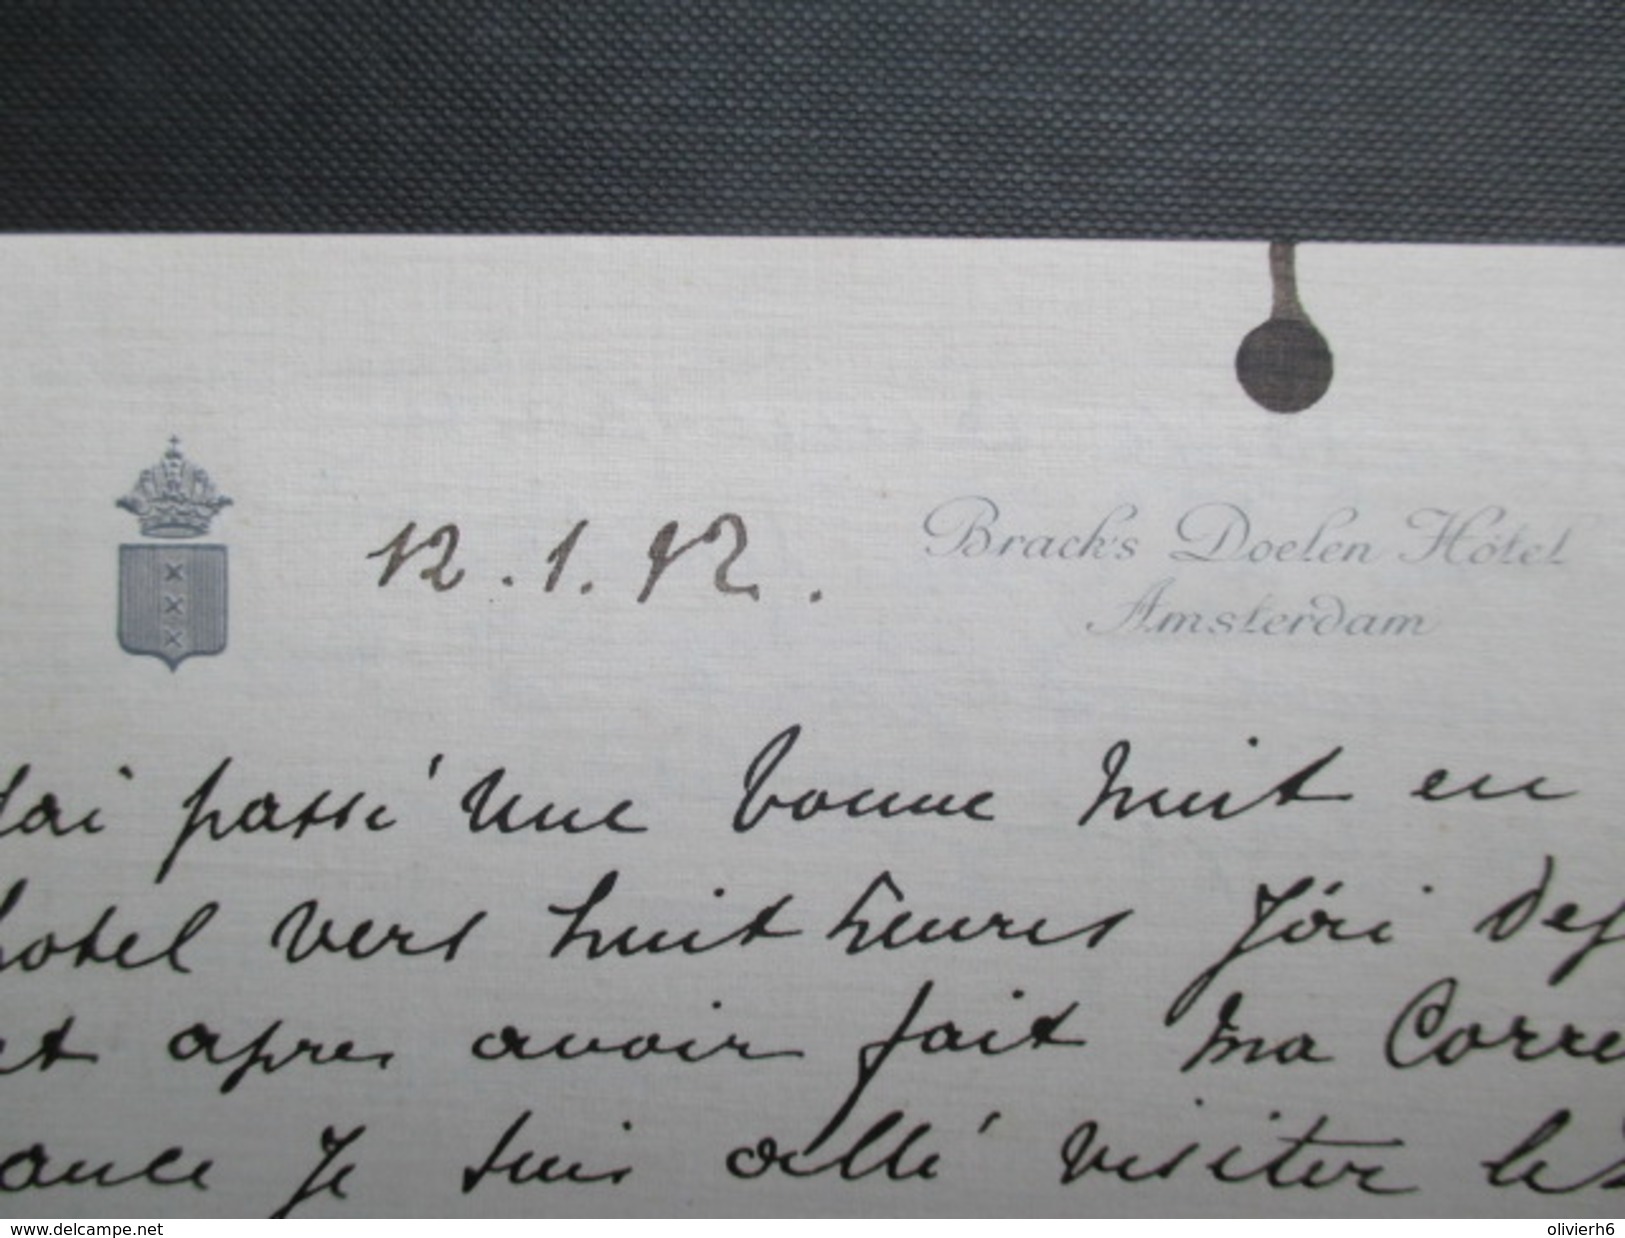 12.1.12.
Brack's Doelen Hôtel
Amsterdam
Jai passé une bonne nuit en
hotel vers huit heures J'ai des
et apres avoir fait ma Corre
ance Je suis allé visiter les
www.delcampe.net
olivierh6